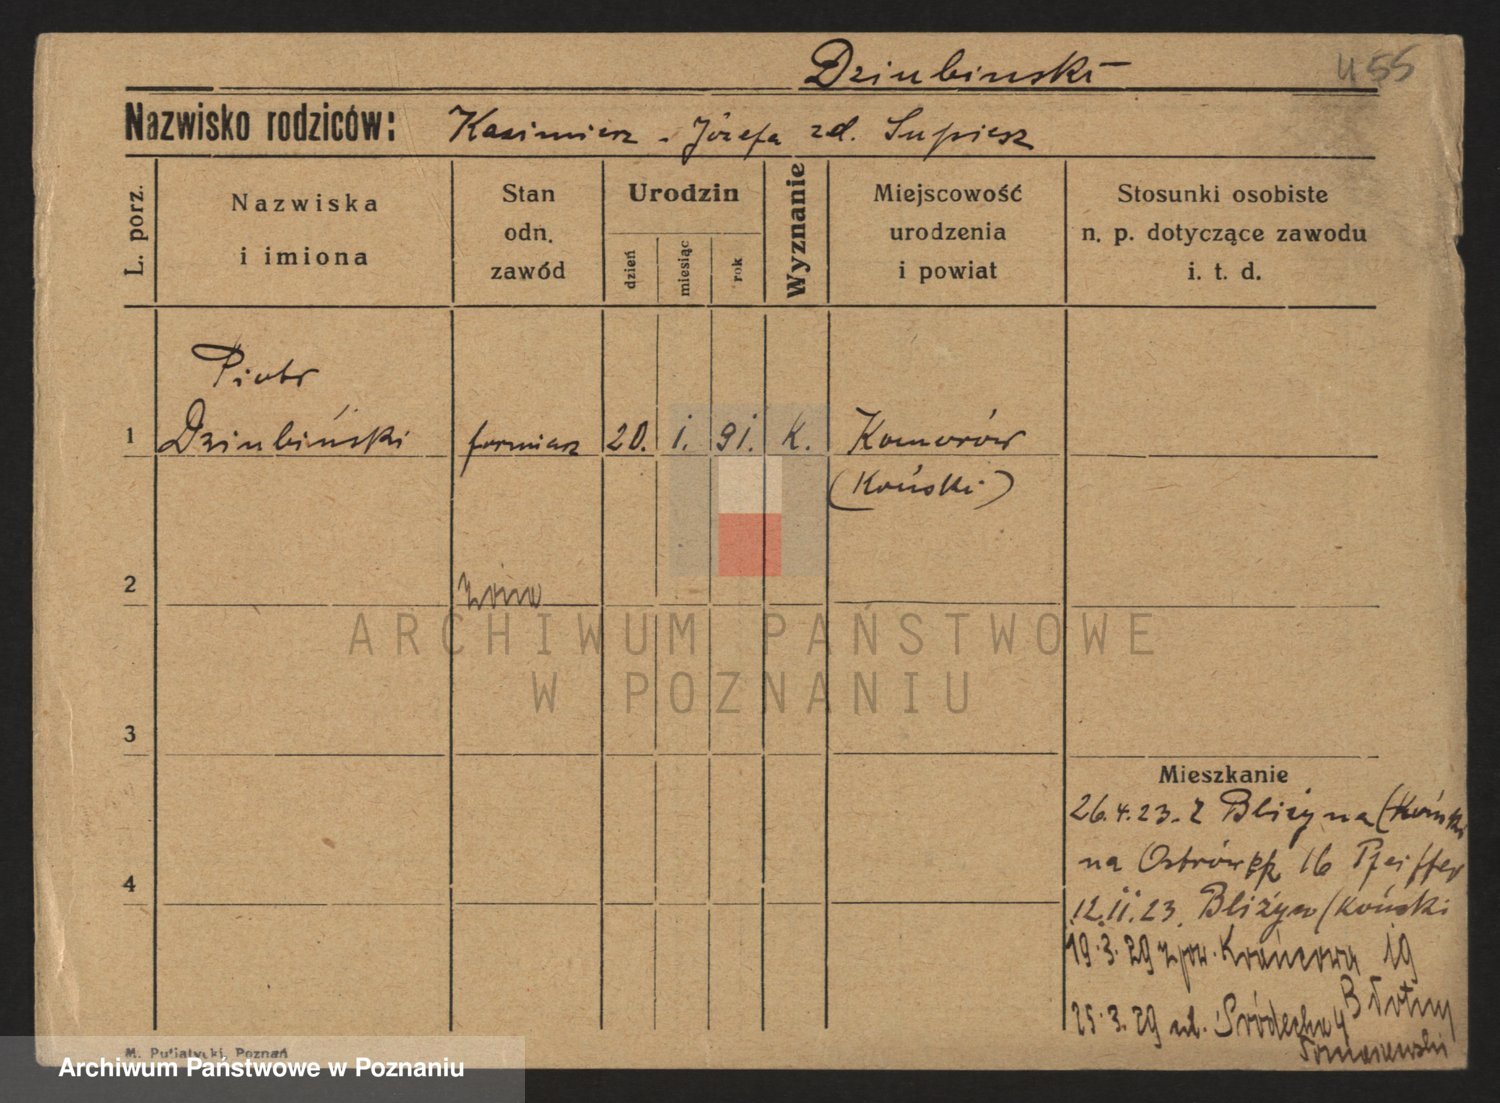 Dziubinski
455
Nazwisko rodziców: Kazimierz - Józefa zd. Supiesz
L. porz.
Nazwiska
i imiona
Stan
odn.
zawód
Urodzin
dzień
miesiąc
rok
Wyznanie
Miejscowość
urodzenia
i powiat
Stosunki osobiste
n. p. dotyczące zawodu
i. t. d.
Piotr
1 Dziubiński formiarz 20. i. 91. K. Komorów
(Koński)
2
3
4
Mieszkanie
26.4.23. z Bliżyna (Końsk
na Ostrówek 16 Pfeiffer
12.ii.23. Bliżyn (Koński
19.3.29 z pow. Krańcowa 19
25.3.29 ul. Śródecka 4
Tomaszewski
M. Putiatycki, Poznań
ARCHIWUM PAŃSTWOWE
W POZNANIU
Archiwum Państwowe w Poznaniu